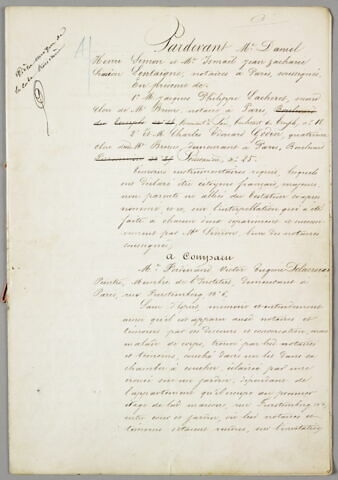 Pardevant Me Daniel
Henri Simon et Me Ismaïl Jean Zacharie
notaires à Paris, soussignés,
En présence de:
1° M. Jacques Philippe Cacheret, second
clerc de Me Brun, notaire à Paris, Boulevard
du Temple
2° et M. Charles Gédéon, quatrième
clerc dud. Me Brun, demeurant à Paris, Boulevard
n° 25.
Témoins instrumentaires requis, lesquels
ont déclaré être citoyens français, majeurs,
non parents ni alliés du testateur ci-après
nommé et ce, sur l'interpellation qui a été
faite à chacun d'eux séparément et
par Me Simon, l'un des notaires
soussignés,
A Comparu
M. Ferdinand Victor Eugène Delacroix
Peintre, Membre de l'Institut, demeurant à
Paris, rue Furstenberg n° 6,
Sain d'esprit, mémoire et entendement
ainsi qu'il est apparu aux notaires et
témoins par ses discours et conversation, mais
malade de corps, trouvé par les notaires
et témoins, couché dans un lit dans sa
chambre à coucher éclairée par une
croisée sur un jardin, dépendant de
l'appartement qu'il occupe au premier
étage de lad. maison, rue Furstenberg n° 6,
entre cour et jardin, où les notaires et
témoins